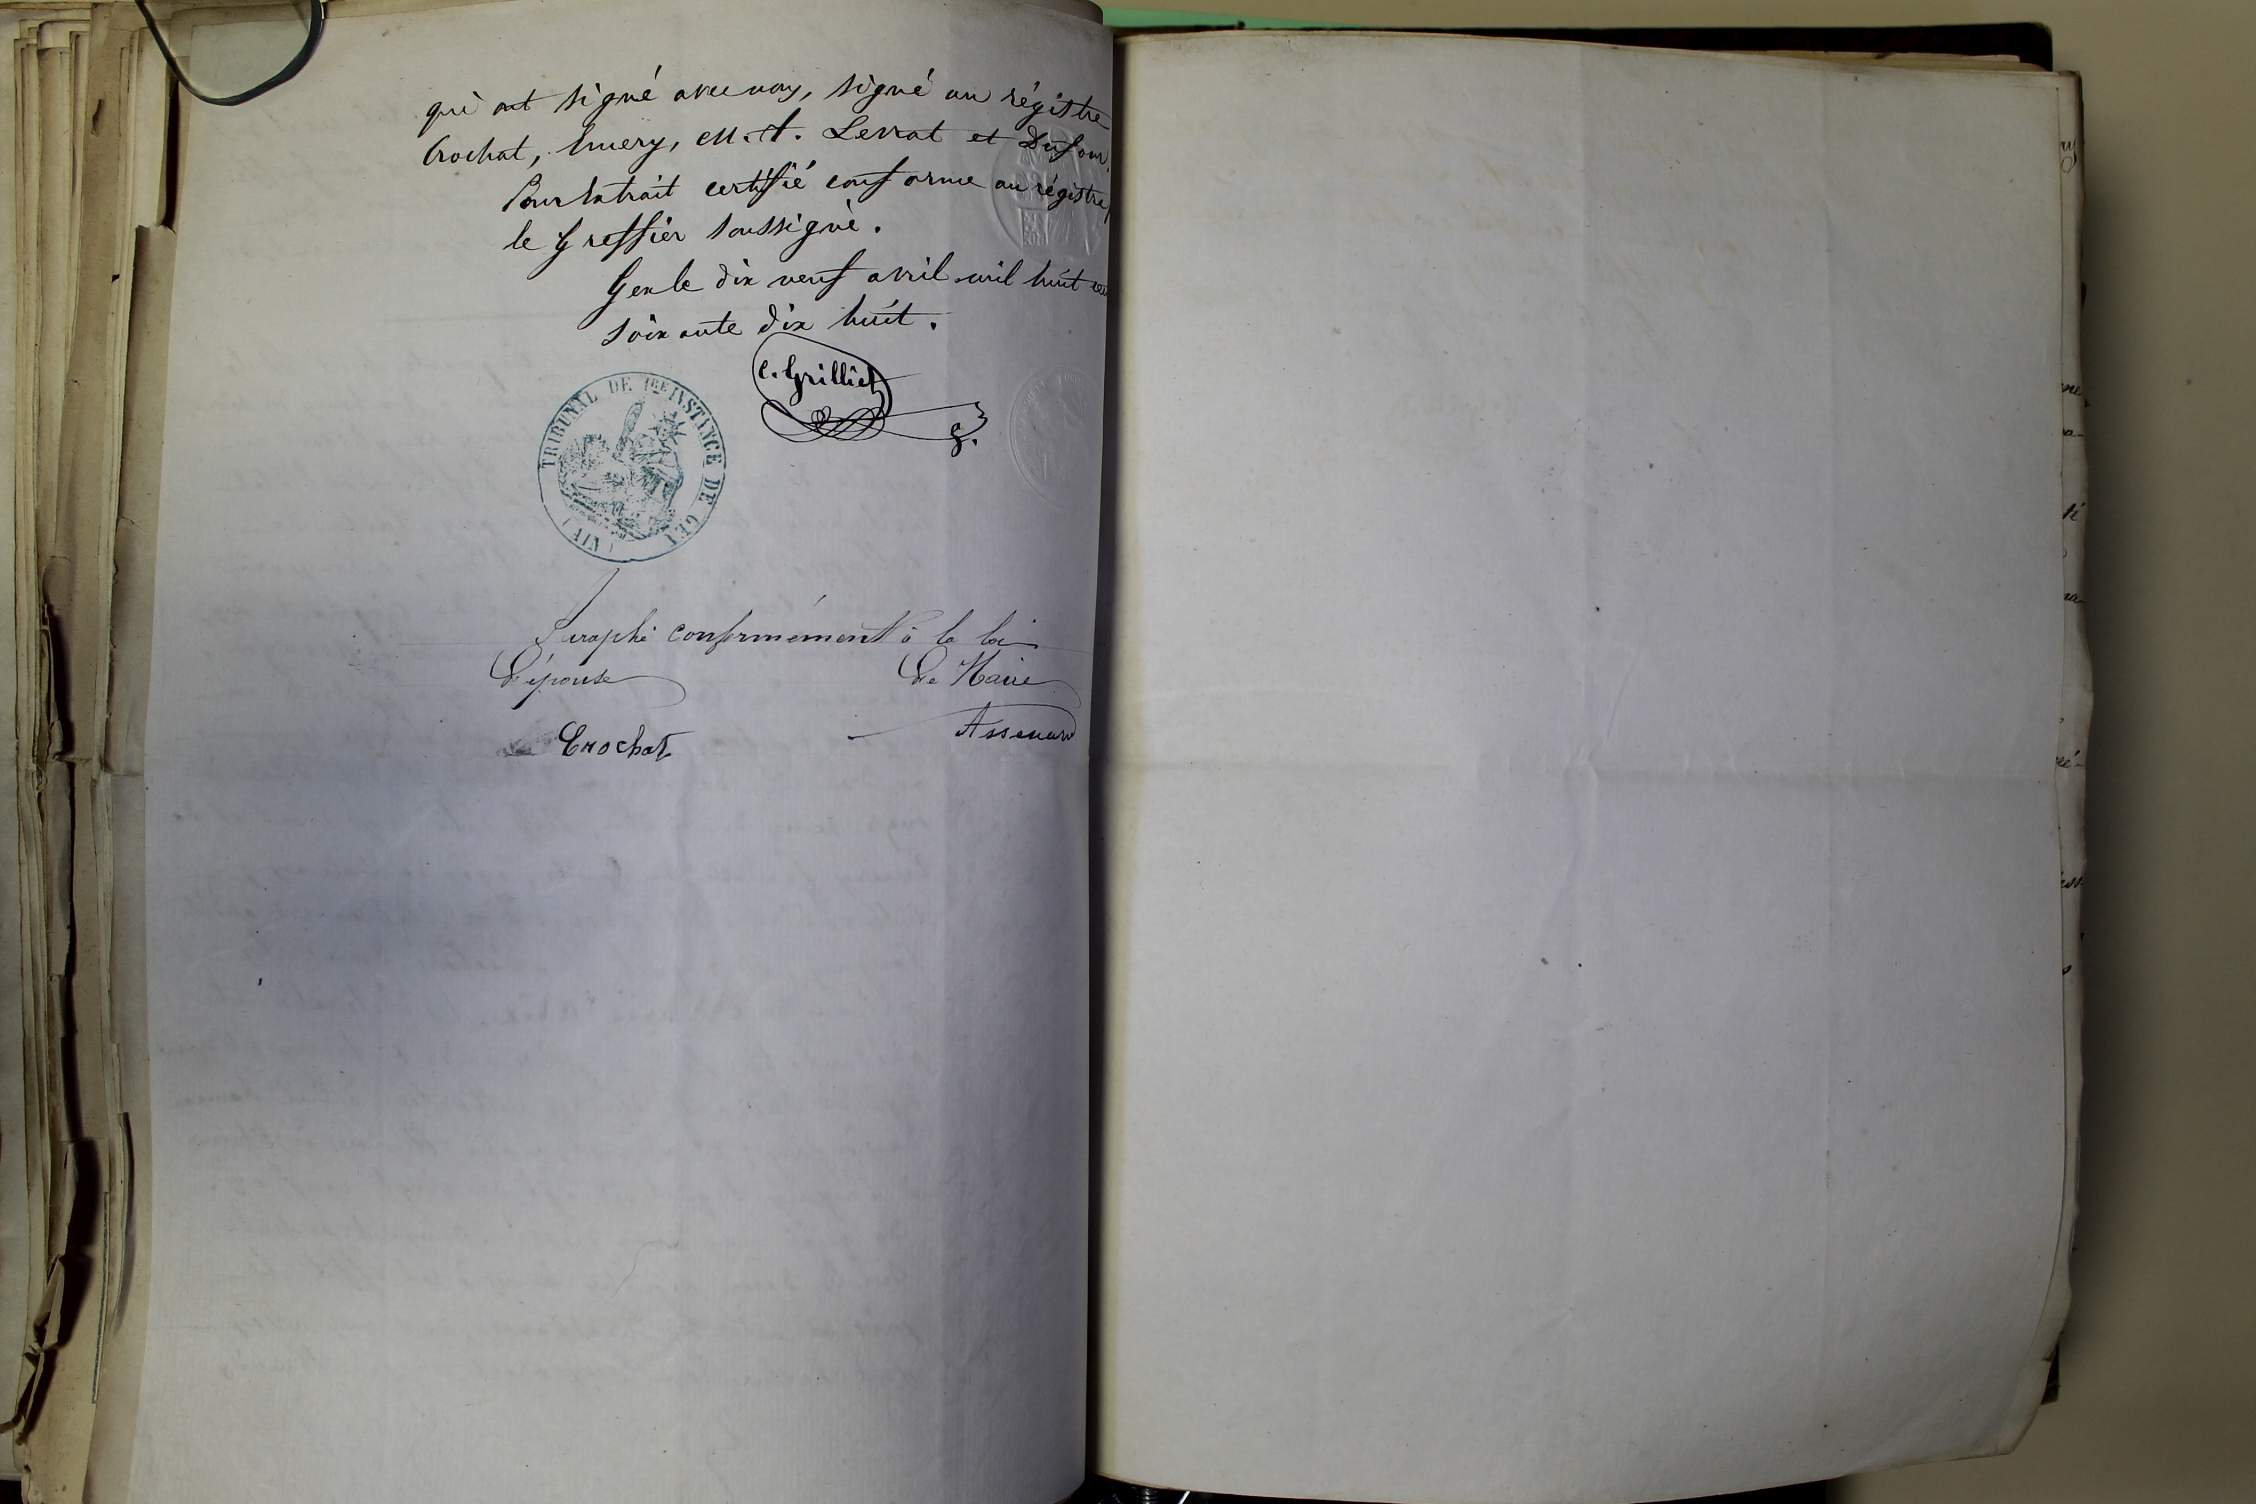 qui ont signé avec nous, signé au régistre
Crochat, Emery, M. A. Levrat et Dufour.
Pour Extrait certifié conforme au régistre
le Greffier soussigné.
Gex le dix neuf avril mil huit cent
soixante dix huit.
C. Grilliet
g.
TRIBUNAL DE 1RE INSTANCE DE GEX
(AIN)
Paraphé conformément à la loi
L'épouse Le Maire
Crochat